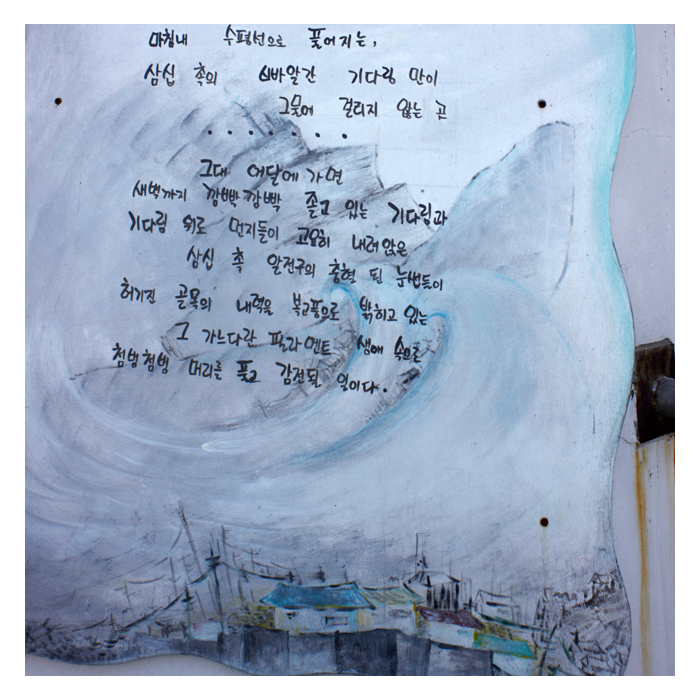 마침내 수평선으로 풀어지는,
삼십 촉의 새빨알간 기다림 만이
그물에 걸리지 않는 곳
· · · · · · ·
그대 어달에 가면
새벽까지 깜빡깜빡 졸고 있는 기다림과
기다림 위로 먼지들이 고요히 내려앉은
삼십 촉 알전구의 충혈 된 눈썹들이
허기진 골목의 내력을 복고풍으로 밝히고 있는
그 가느다란 필라멘트 생애 속으로
첨벙첨벙 머리를 풀고 감전될 일이다.